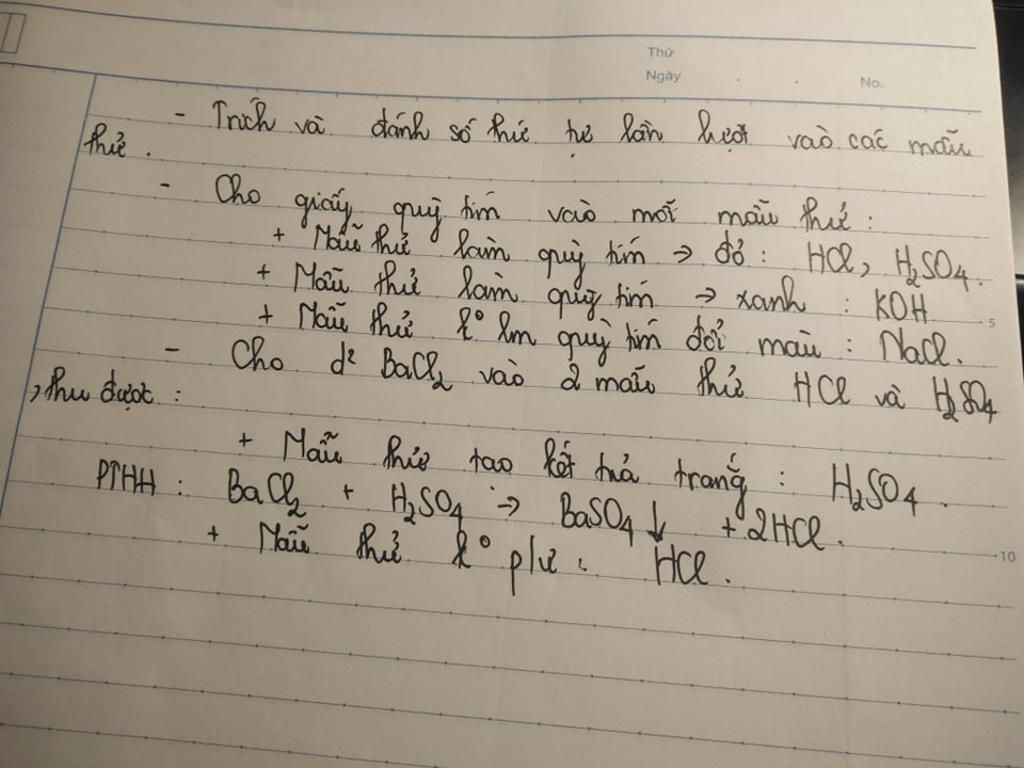 Thứ
Ngày . . No.
- Trích và đánh số thứ tự lần lượt vào các mẫu
thử .
- Cho giấy quỳ tím vào mỗi mẫu thử :
+ Mẫu thử làm quỳ tím → đỏ : HCl, H₂SO₄.
+ Mẫu thử làm quỳ tím → xanh : KOH
5
+ Mẫu thử k° lm quỳ tím đổi màu : NaCl.
- Cho d² BaCl₂ vào 2 mẫu thử HCl và H₂SO₄
, thu được :
+ Mẫu thử tạo kết tủa trắng : H₂SO₄.
PTHH : BaCl₂ + H₂SO₄ → BaSO₄↓ + 2HCl.
+ Mẫu thử k° p/ư : HCl.
10